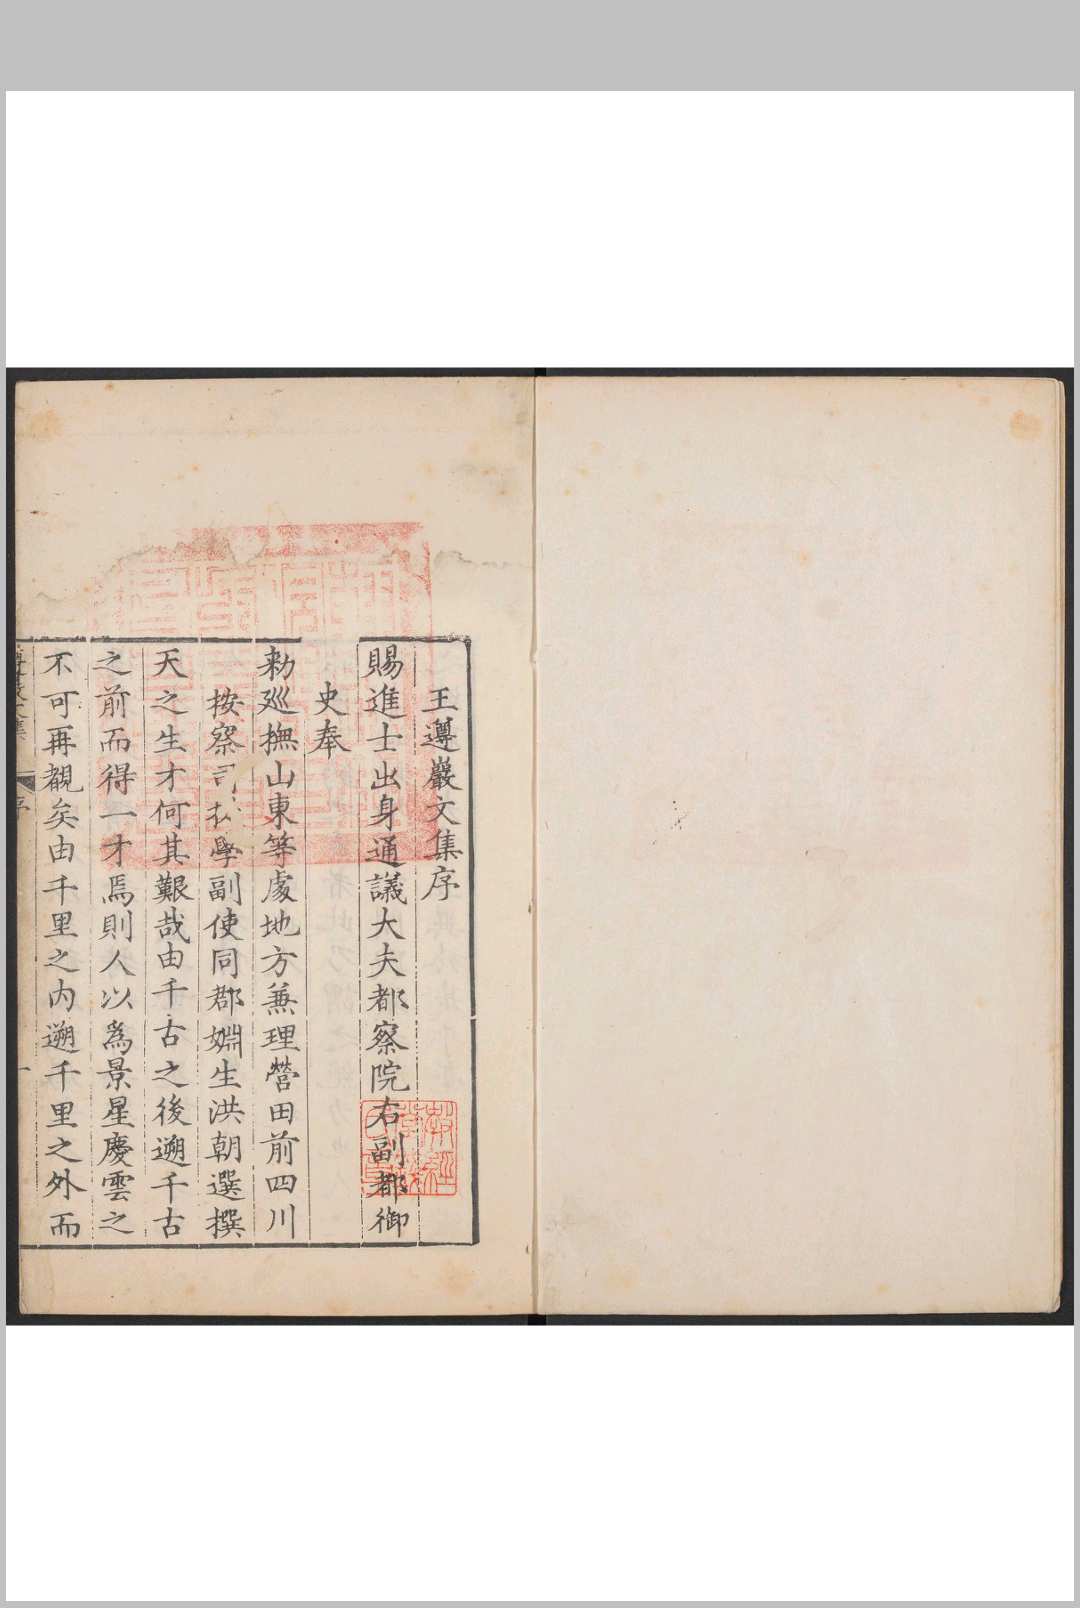 王遵巖文集序
賜進士出身通議大夫都察院右副都御
史奉
勑廵撫山東等處地方兼理營田前四川
按察司 學副使同郡婣生洪朝選撰
天之生才何其艱哉由千古之後遡千古
之前而得一才焉則人以為景星慶雲之
不可再覩矣由千里之内遡千里之外而